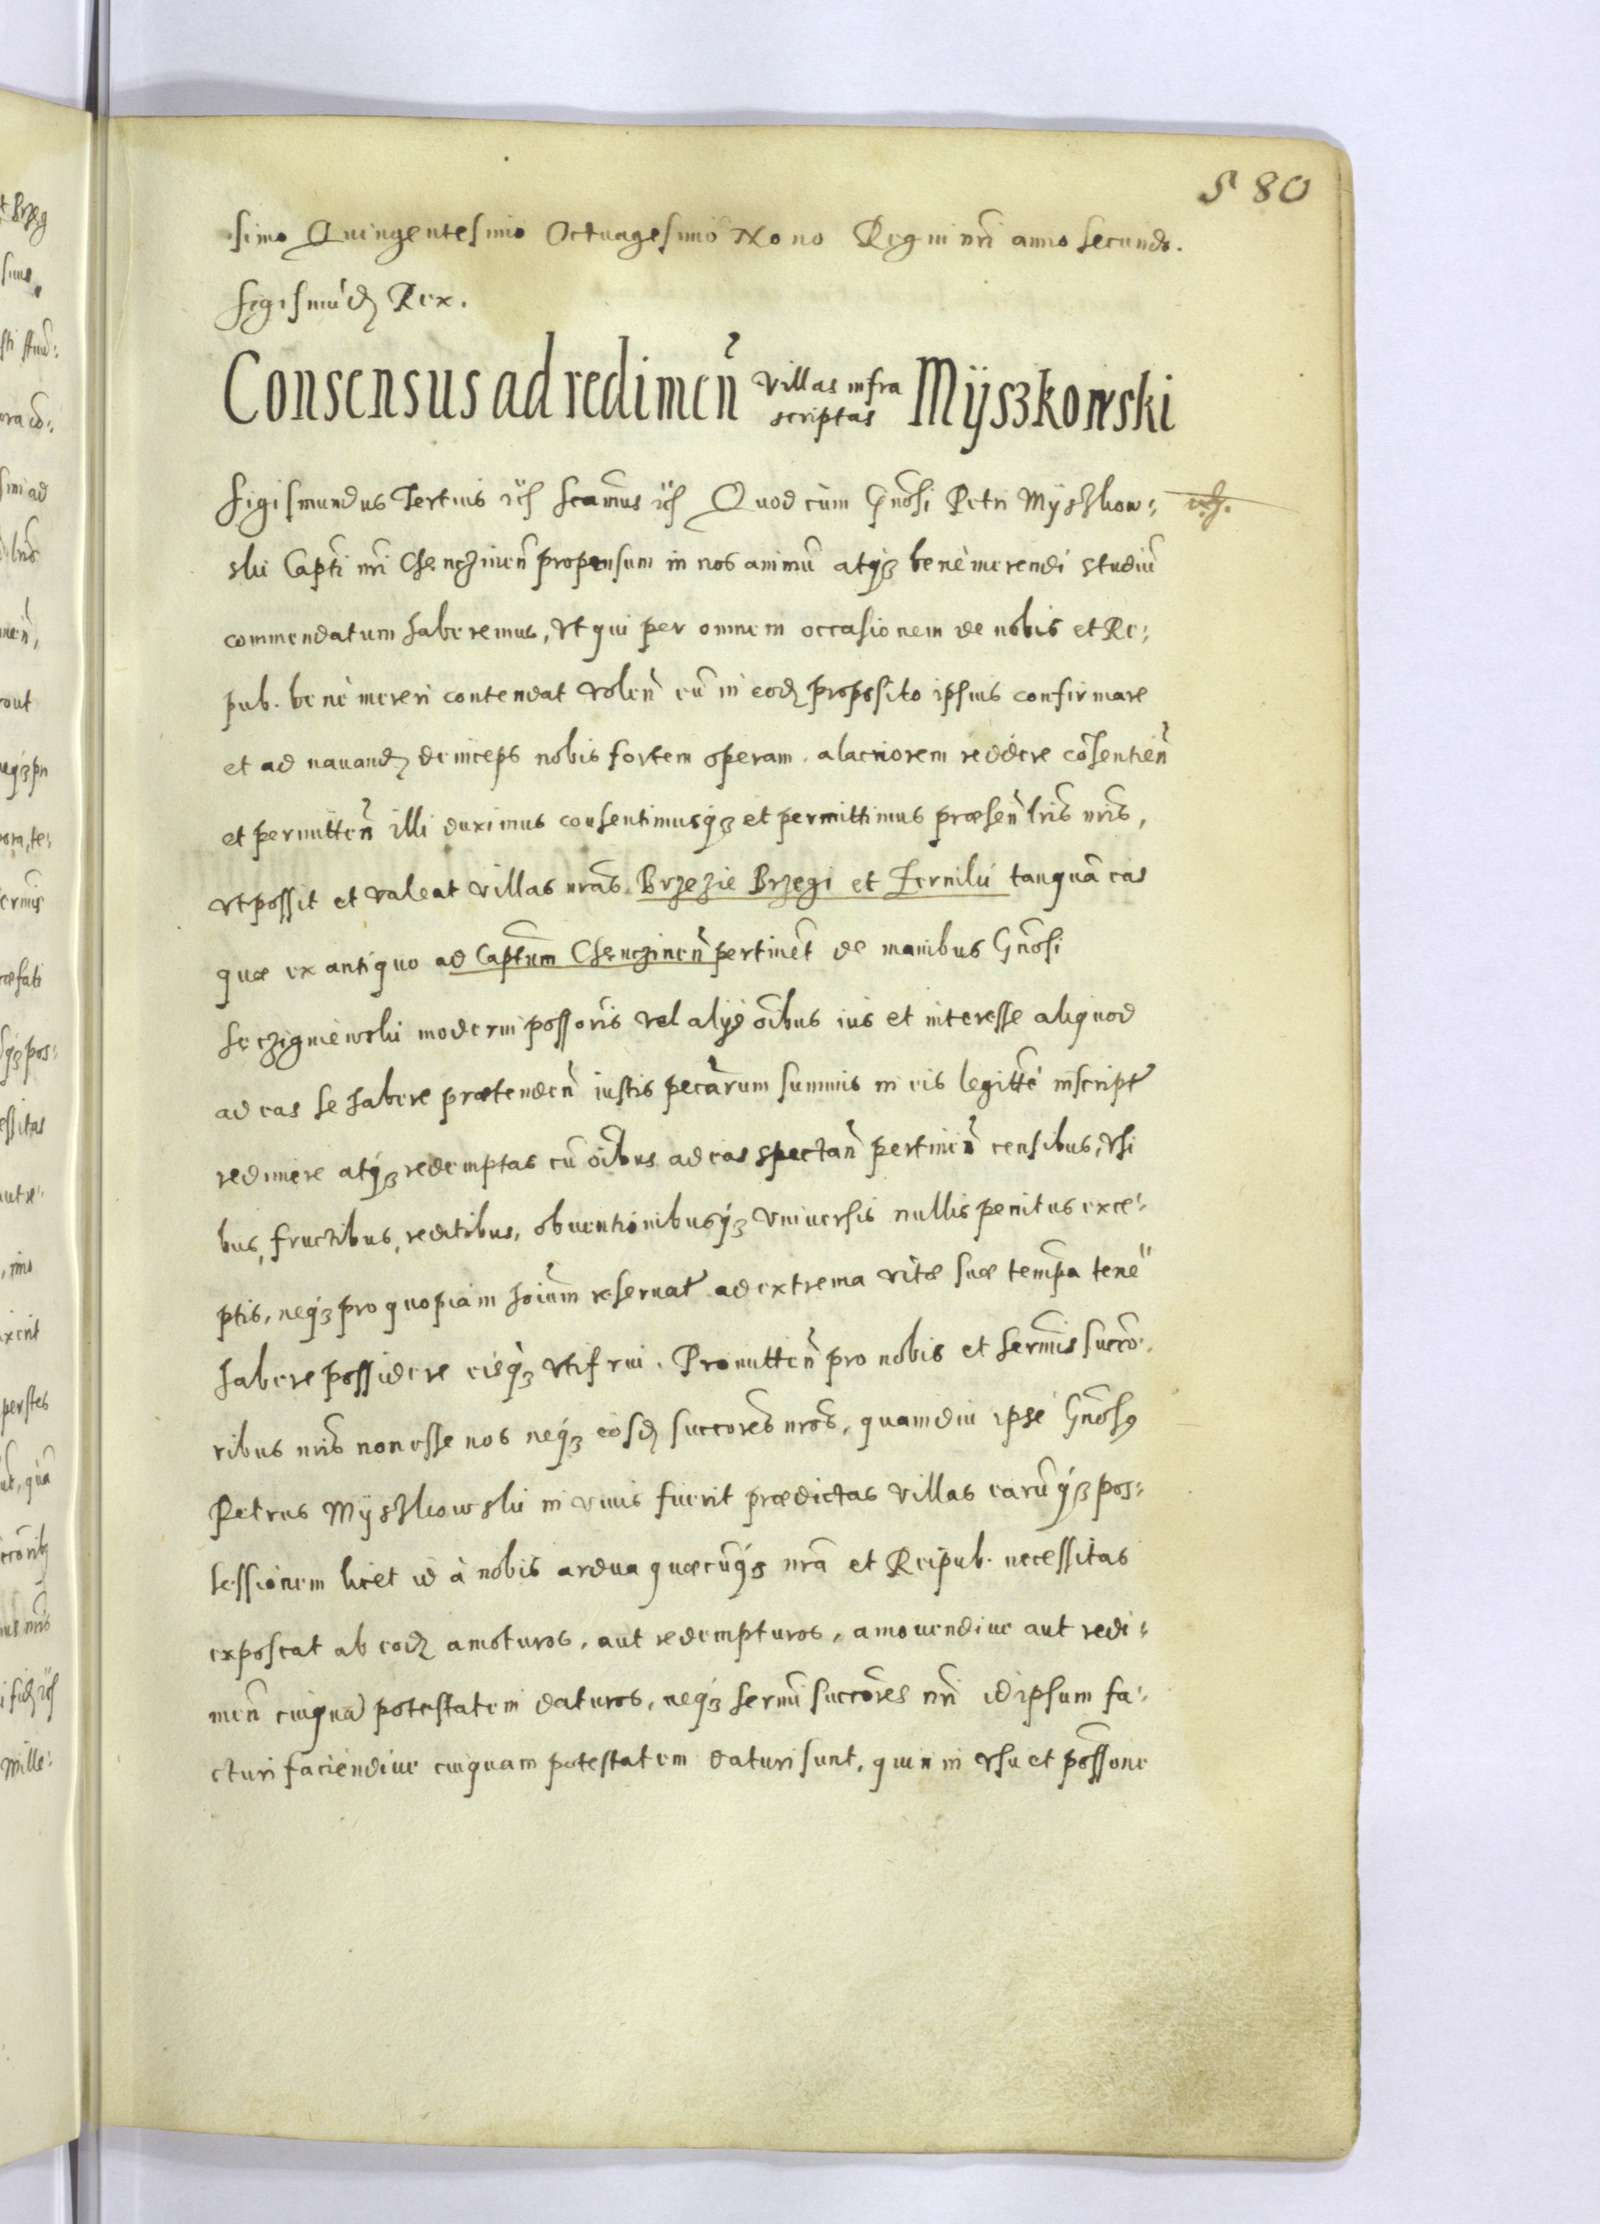 580
simo Quingentesimo Octuagesimo Nono Regni nr̃i anno Secundo.
Sigismũdꝫ Rex.
Consensus ad redimen̄ villas infra scriptas Mÿszkowski
Sigismundus Tertius ꝛc̃ Scam̃us ꝛc̃ Quod cùm Gñosi Petri Mÿszkow:
ski Capti nr̃i Chęnczinen̄ propensum in nos animũ atqꝫ benè merendi studiũ
commendatum haberemus, vt qui per omnem occasionem de nobis et Re:
pub. benè mereri contendat volen̄ eũ in eodꝫ proposito ipsius confirmare
et ad nauandꝫ deinceps nobis fortem operam alacriorem reddere cõsentien̄
et permitten̄ illi duximus consentimusqꝫ et permittimus præsen̄ lr̃is nr̃is,
vt possit et valeat villas nrãs Brzezie Brzegi et Zerniki tanquã eas
quæ ex antiquo ad Captum̃ Chęnczinen̄ pertinẽt de manibus Gñosi
Seczigniewski moderni possoris vel alijs oĩbus ius et interesse aliquod
ad eas se habere prætenden̄ iustis pecãrum summis in eis legittẽ inscript̃
redimere atqꝫ redemptas cũ oĩbus ad eas spectan̄ pertinen̄ censibus, vsi
bus, fructibus, reditibus, obuentionibusqꝫ vniuersis nullis penitus exce:
ptis, neqꝫ pro quopiam hoĩum reseruat̃ ad extrema vitæ suæ tempa tene"
habere possidere eisqꝫ vti frui. Promitten̄ pro nobis et Sermĩs Succo:
ribus nr̃is non esse nos neqꝫ eosdꝫ succores nrõs, quamdiu ipse Gñosꝯ
Petrus Mÿszkowski in viuis fuerit prædictas villas earũqꝫ pos:
sessionem licet id à nobis ardua quæcũqꝫ nrã et Reipub. necessitas
exposcat ab eodꝫ amoturos, aut redempturos, amouendiue aut redi:
men̄ cuiquã potestatem daturos, neqꝫ Sermĩ succores nr̃i id ipsum fa:
cturi faciendiue cuiquam potestatem daturi sunt, quin in vsu et possone